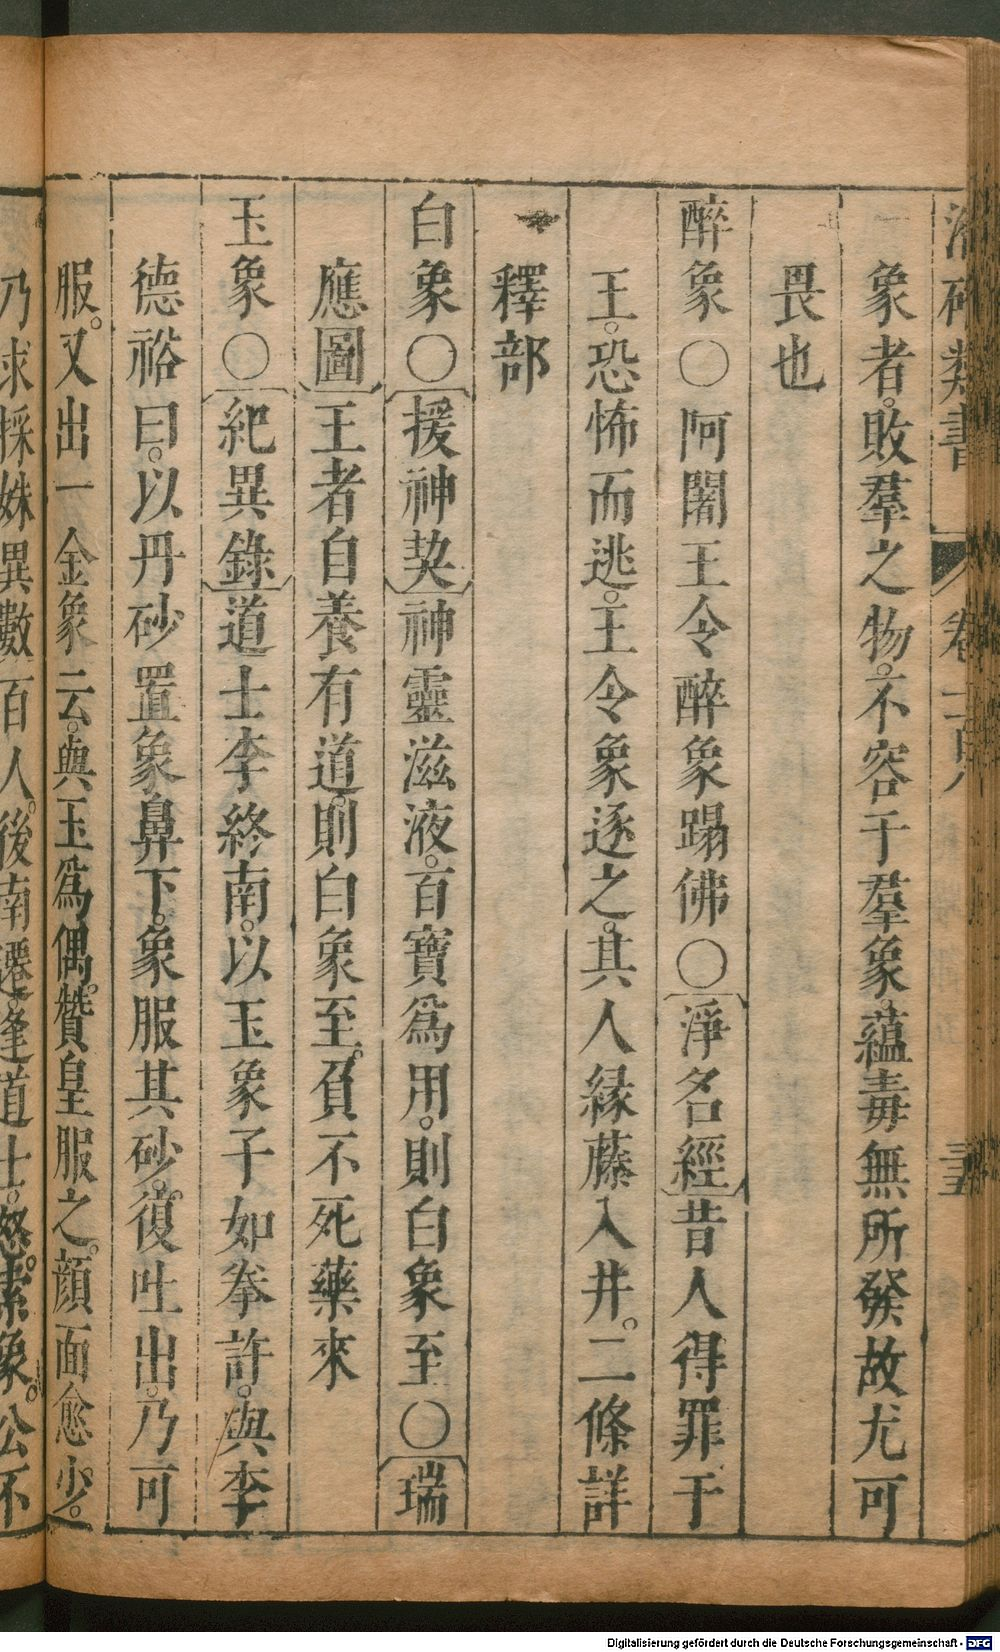 象者。敗羣之物。不容于羣象。蘊毒無所發故尤可
畏也
醉象〇阿闍王令醉象蹋佛〇淨名經昔人得罪于
王。恐怖而逃。王令象逐之。其人緣藤入井。二條詳
釋部
白象〇援神契神靈滋液。百寶爲用。則白象至〇瑞
應圖王者自養有道。則白象至。負不死藥來
玉象〇紀異錄道士李終南。以玉象子如拳許。與李
德裕曰。以丹砂置象鼻下。象服其砂。復吐出。乃可
服。又出一金象云。與玉爲偶。贊皇服之。顔面愈少。
乃求採姝異數百人。後南遷。逢道士。怒。索象。公不
Digitalisierung gefördert durch die Deutsche Forschungsgemeinschaft - DFG